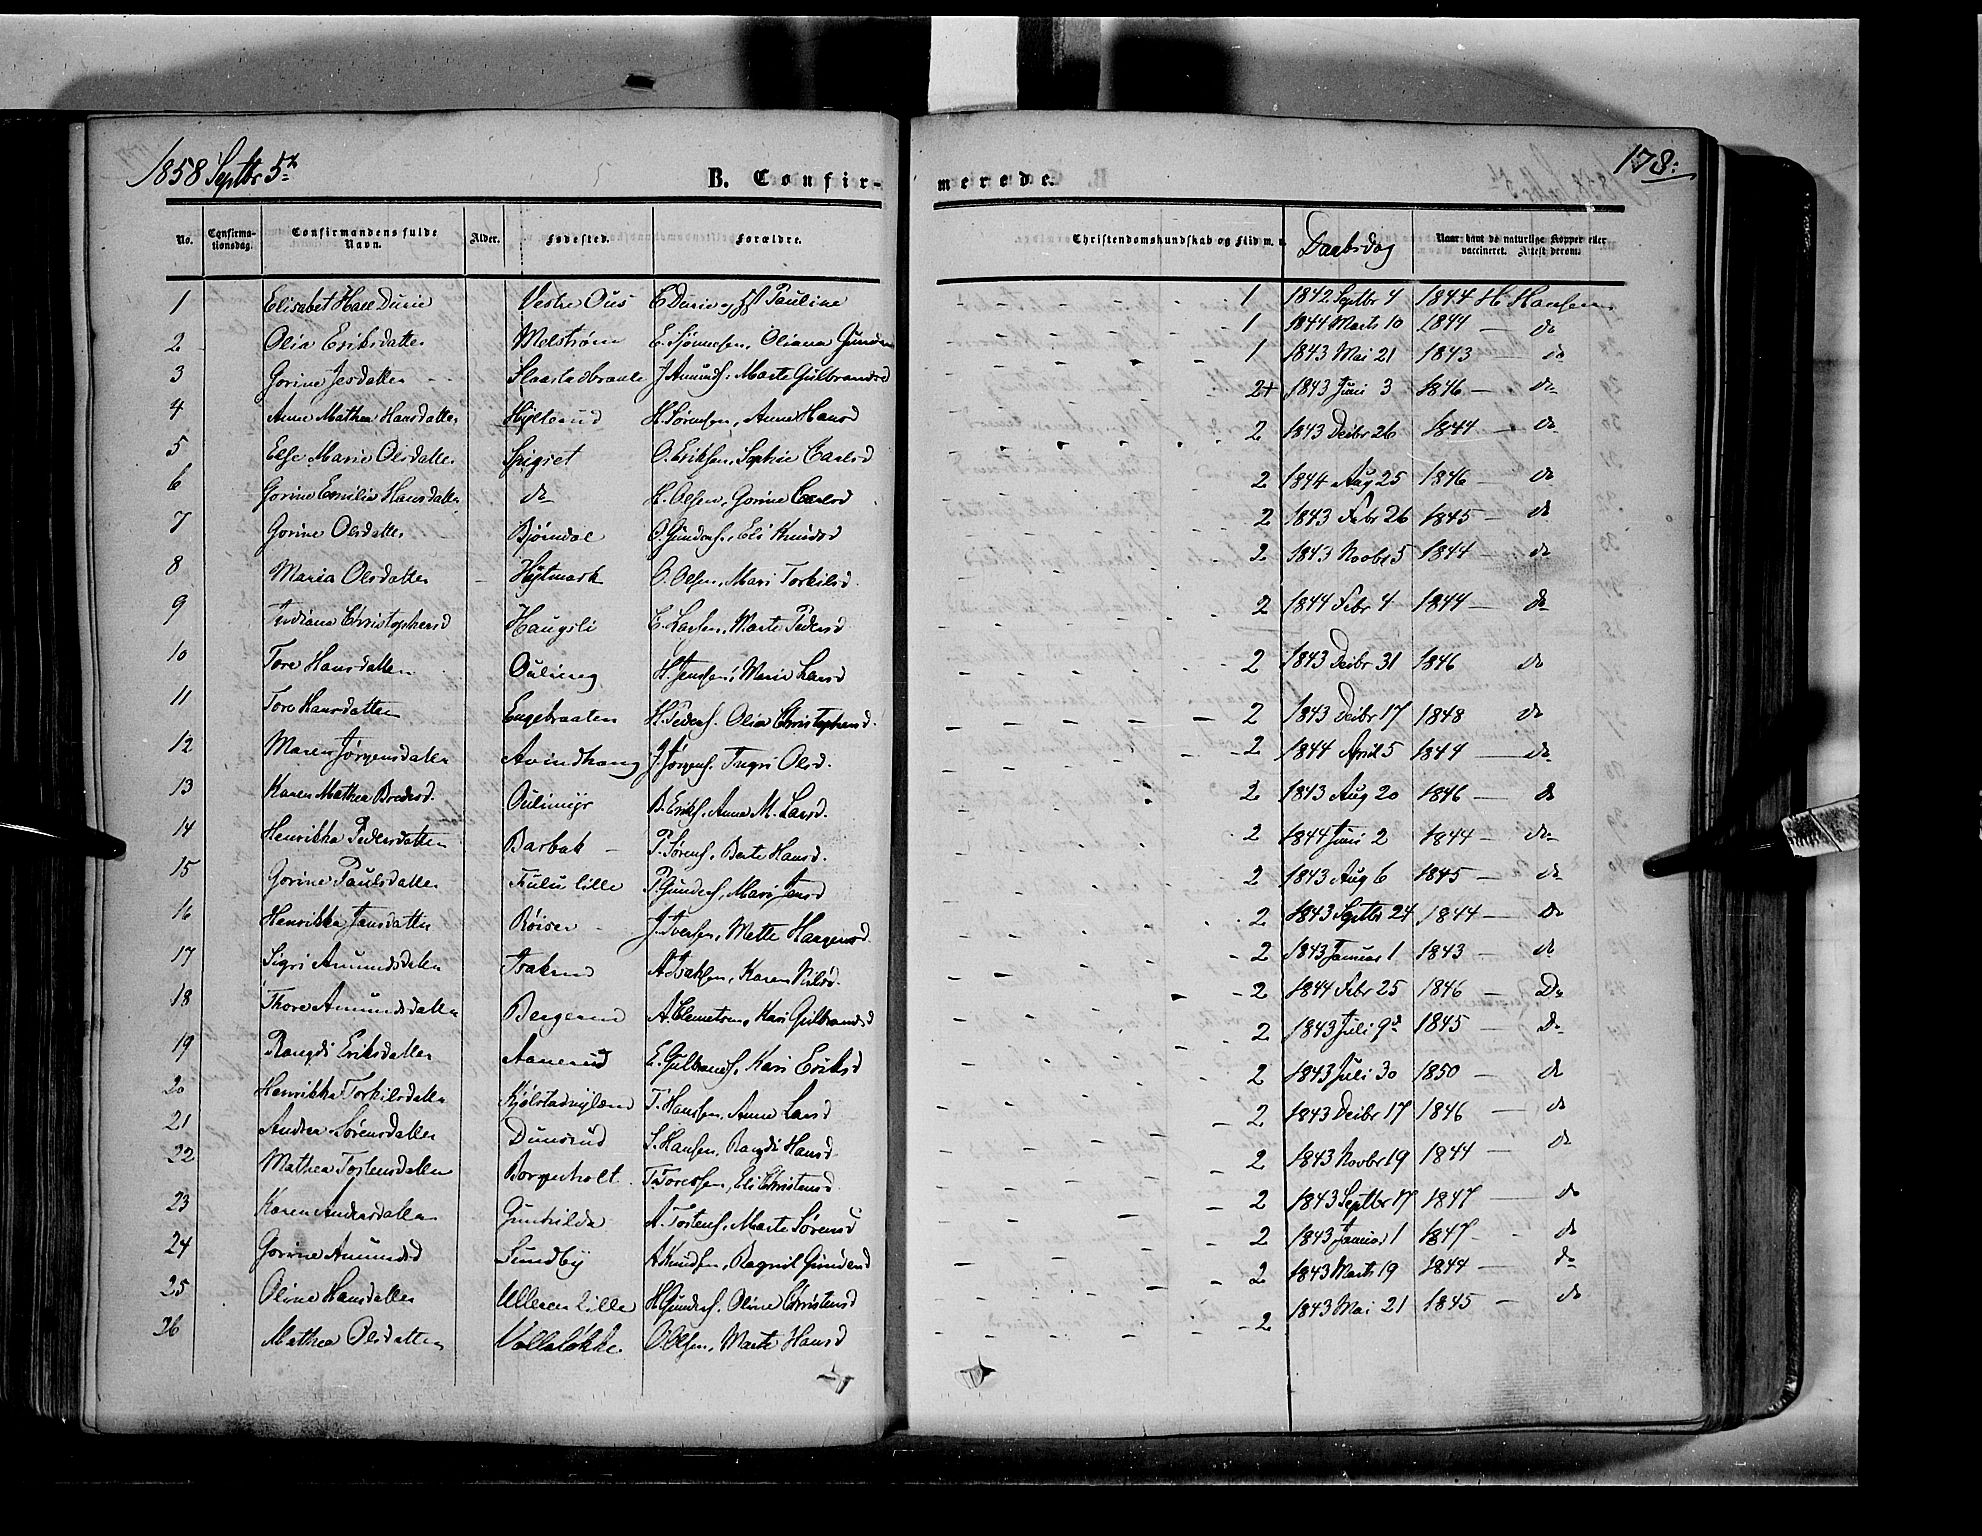 1858 Septbr 5te
B. Confir-
merede.
178:
No. Confirmationsdag. Confirmandens fulde Navn. Alder. Fødested. Forældre. Christendomskundskab og Flid m. v. Daabsdag Naar havt de naturlige Kopper eller vaccineret. Attest derom.
1 Elisabet Hall Durie Vestre Ous C Durie og Pauline 1 1842 Septbr 4 1844 H Hansen
2 Olia Eriksdatter Melstrøm E. Sjønnesen, Oliana Gunders 1 1844 Marts 10 1844 — do
3 Gorine Jensdatter J Amunds. Marte Gulbrandsd 1 1843 Mai 21 1843 — do
4 Anne Mathea Hansdatter H. Sørensen, Anne Hansd 2+ 1843 Juni 3 1846 — do
5 Else Marie Olsdatter Spigset O. Eriksen, Sophie Carlsd 2 1843 Decbr 26 1844 — do
6 Gorine Emilie Hansdatter do H. Olsen, Gorine Carlsd 2 1844 Aug 25 1846 — do
7 Gorine Olsdatter Bjørndal O. Gunders., Eli Knudsd 2 1843 Febr 26 1845 — do
8 Maria Olsdatter Hytmark O. Olsen, Mari Torkilsd. 2 1843 Novbr 5 1844 — do
9 Indiana Christophersd Haugsli C. Larsen, Marte Pedersd 2 1844 Febr 4 1844 — do
10 Tore Hansdatter Oulineg H. Jensen, Maria Larsd 2 1843 Decbr 31 1846 do
11 Tore Hansdatter Engebraaten H. Peders. Olia Christophersd. 2 1843 Decbr 17 1848 do
12 Maren Jørgensdatter Avindhaug J. Jørgens. Ingri Olsd. 2 1844 April 5 1844 — do
13 Karen Mathea Bredesd. Oulimyr B. Eriks. Anne M. Larsd. 2 1843 Aug 20 1846 — do
14 Henrikka Pedersdatter Barbak — P. Sørens. Berte Hansd. 2 1844 Juni 2 1844 — do
15 Gorine Paulsdatter Fulu lille P. Gunders. Mari Jensd 2 1843 Aug 6 1845 — do
16 Henrikka Jansdatter Røiser J. Iversen, Mette Haagensd. 2 1843 Septbr 24 1844 — Do
17 Sigri Amundsdatter Isakrud A. Isaksen, Karen Nilsd. 2 1843 Januar 1 1843 — do
18 Thore Amundsdatter Bergerud A. Clemetsen, Kari Gulbrandsd 2 1844 Febr 25 1846 — Do
19 Rangdi Eriksdatter Aanerud E. Gulbrands. Kari Eriksd 2 1843 Juli 9d 1845 — Do
20 Henrikka Torkilsdatter Kjølstadnylænd T. Hansen, Anne Larsd 2 1843 Juli 30 1850 — do
21 Andrea Sørensdatter Dunsrud S. Hansen, Rangdi Hansd. 2 1843 Decbr 17 1846 — do
22 Mathea Tostensdatter Borgerholt T. Toresen, Eli Christensd. 2 1843 Novbr 19 1844 — do
23 Karen Andersdatter Gunhilda A. Tostens. Marte Sørensd 2 1843 Septbr 17 1847 — do
24 Gorine Amundsd Sundby A Knudsen, Ragnil Gundersd 2 1843 Januar 1 1847 - do
25 Oline Hansdatter Ulleren Lille H Gunders. Oline Christensd 2 1843 Marts 19 1844 — do
26 Mathea Olsdatter Vollaløkke O. Olsen, Marte Hansd 2 1843 Mai 21 1845 — do